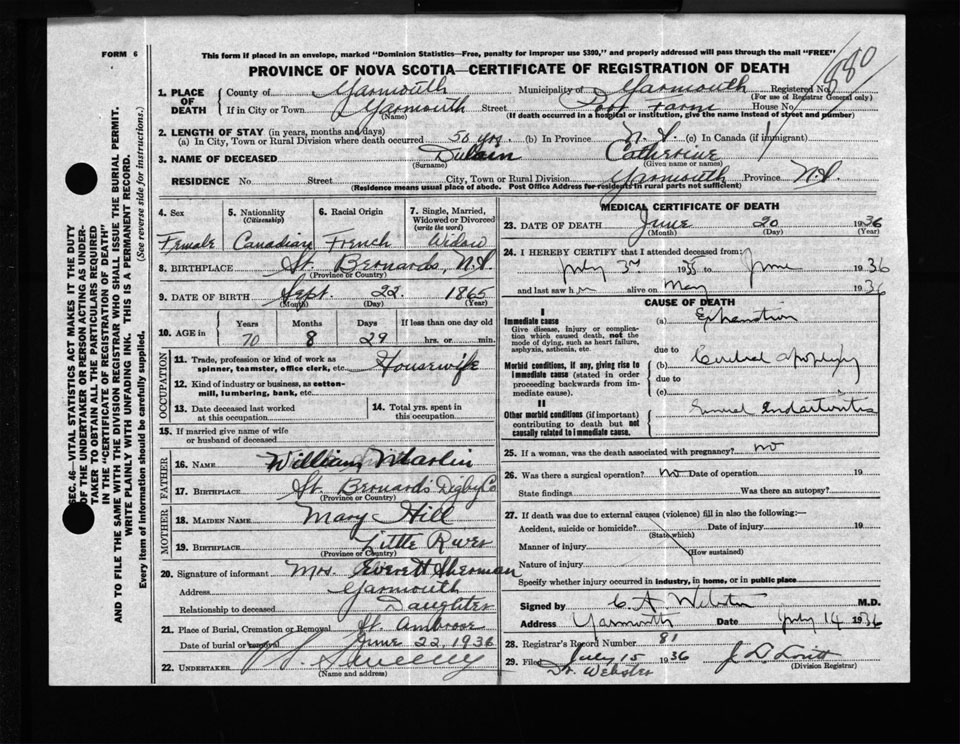 FORM 6
This form if placed in an envelope, marked "Dominion Statistics—Free, penalty for improper use $300," and properly addressed will pass through the mail "FREE"
PROVINCE OF NOVA SCOTIA—CERTIFICATE OF REGISTRATION OF DEATH
880
SEC. 46—VITAL STATISTICS ACT MAKES IT THE DUTY
OF THE UNDERTAKER OR PERSON ACTING AS UNDER-
TAKER TO OBTAIN ALL THE PARTICULARS REQUIRED
IN THE "CERTIFICATE OF REGISTRATION OF DEATH"
AND TO FILE THE SAME WITH THE DIVISION REGISTRAR WHO SHALL ISSUE THE BURIAL PERMIT.
WRITE PLAINLY WITH UNFADING INK. THIS IS A PERMANENT RECORD.
Every item of information should be carefully supplied. (See reverse side for instructions.)
1. PLACE OF DEATH
County of Yarmouth Municipality of Yarmouth Registered No.
(For use of Registrar General only)
If in City or Town Yarmouth Street Poor Farm House No.
(Name) (If death occurred in a hospital or institution, give the name instead of street and number)
2. LENGTH OF STAY (in years, months and days)
(a) In City, Town or Rural Division where death occurred 50 yrs. (b) In Province N.S. (c) In Canada (if immigrant)
3. NAME OF DECEASED Dulain Catherine
(Surname) (Given name or names)
RESIDENCE No. Street City, Town or Rural Division Yarmouth Province N.S.
(Residence means usual place of abode. Post Office Address for residents in rural parts not sufficient)
4. Sex
5. Nationality (Citizenship)
6. Racial Origin
7. Single, Married, Widowed or Divorced (write the word)
Female Canadian French Widow
8. BIRTHPLACE St. Bernards, N.S.
(Province or Country)
9. DATE OF BIRTH Sept. 22. 1865
(Month) (Day) (Year)
10. AGE in
Years Months Days If less than one day old
70 8 29 hrs. or min.
OCCUPATION
11. Trade, profession or kind of work as
spinner, teamster, office clerk, etc. Housewife
12. Kind of industry or business, as cotton-
mill, lumbering, bank, etc.
13. Date deceased last worked
at this occupation
14. Total yrs. spent in
this occupation
15. If married give name of wife
or husband of deceased
FATHER
16. NAME William Marlin
17. BIRTHPLACE St. Bernards Digby Co
(Province or Country)
MOTHER
18. MAIDEN NAME Mary Hill
19. BIRTHPLACE Little River
(Province or Country)
20. Signature of informant Mrs. Everett Sherman
Address Yarmouth
Relationship to deceased Daughter
21. Place of Burial, Cremation or Removal St. Ambrose
Date of burial or removal June 22, 1936
22. UNDERTAKER Sweeney
(Name and address)
MEDICAL CERTIFICATE OF DEATH
23. DATE OF DEATH June 20 1936
(Month) (Day) (Year)
24. I HEREBY CERTIFY that I attended deceased from:
July 3rd 1935 to June 1936
and last saw her alive on May 1936
CAUSE OF DEATH
I
Immediate cause
Give disease, injury or complica-
tion which caused death, not the
mode of dying, such as heart failure,
asphyxia, asthenia, etc.
(a) Exhaustion
due to
Morbid conditions, if any, giving rise to
immediate cause (stated in order
proceeding backwards from im-
mediate cause).
(b) Cerebral apoplexy
due to
(c)
II
Other morbid conditions (if important)
contributing to death but not
causally related to immediate cause.
General Endarteritis
25. If a woman, was the death associated with pregnancy? no
26. Was there a surgical operation? no Date of operation 19
State findings Was there an autopsy?
27. If death was due to external causes (violence) fill in also the following:—
Accident, suicide or homicide? Date of injury 19
(State which)
Manner of injury
(How sustained)
Nature of injury
Specify whether injury occurred in industry, in home, or in public place
Signed by C A Webster M.D.
Address Yarmouth Date July 14 1936
28. Registrar's Record Number 81
29. Filed July 15 1936
Dr. Webster
(Division Registrar)